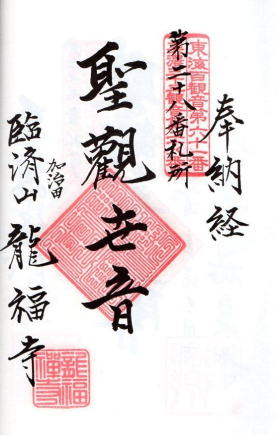 奉納経
東海百観音第六十一番
第二十八番札所
聖觀世音
加治田
臨済山 龍福寺
龍福禅寺